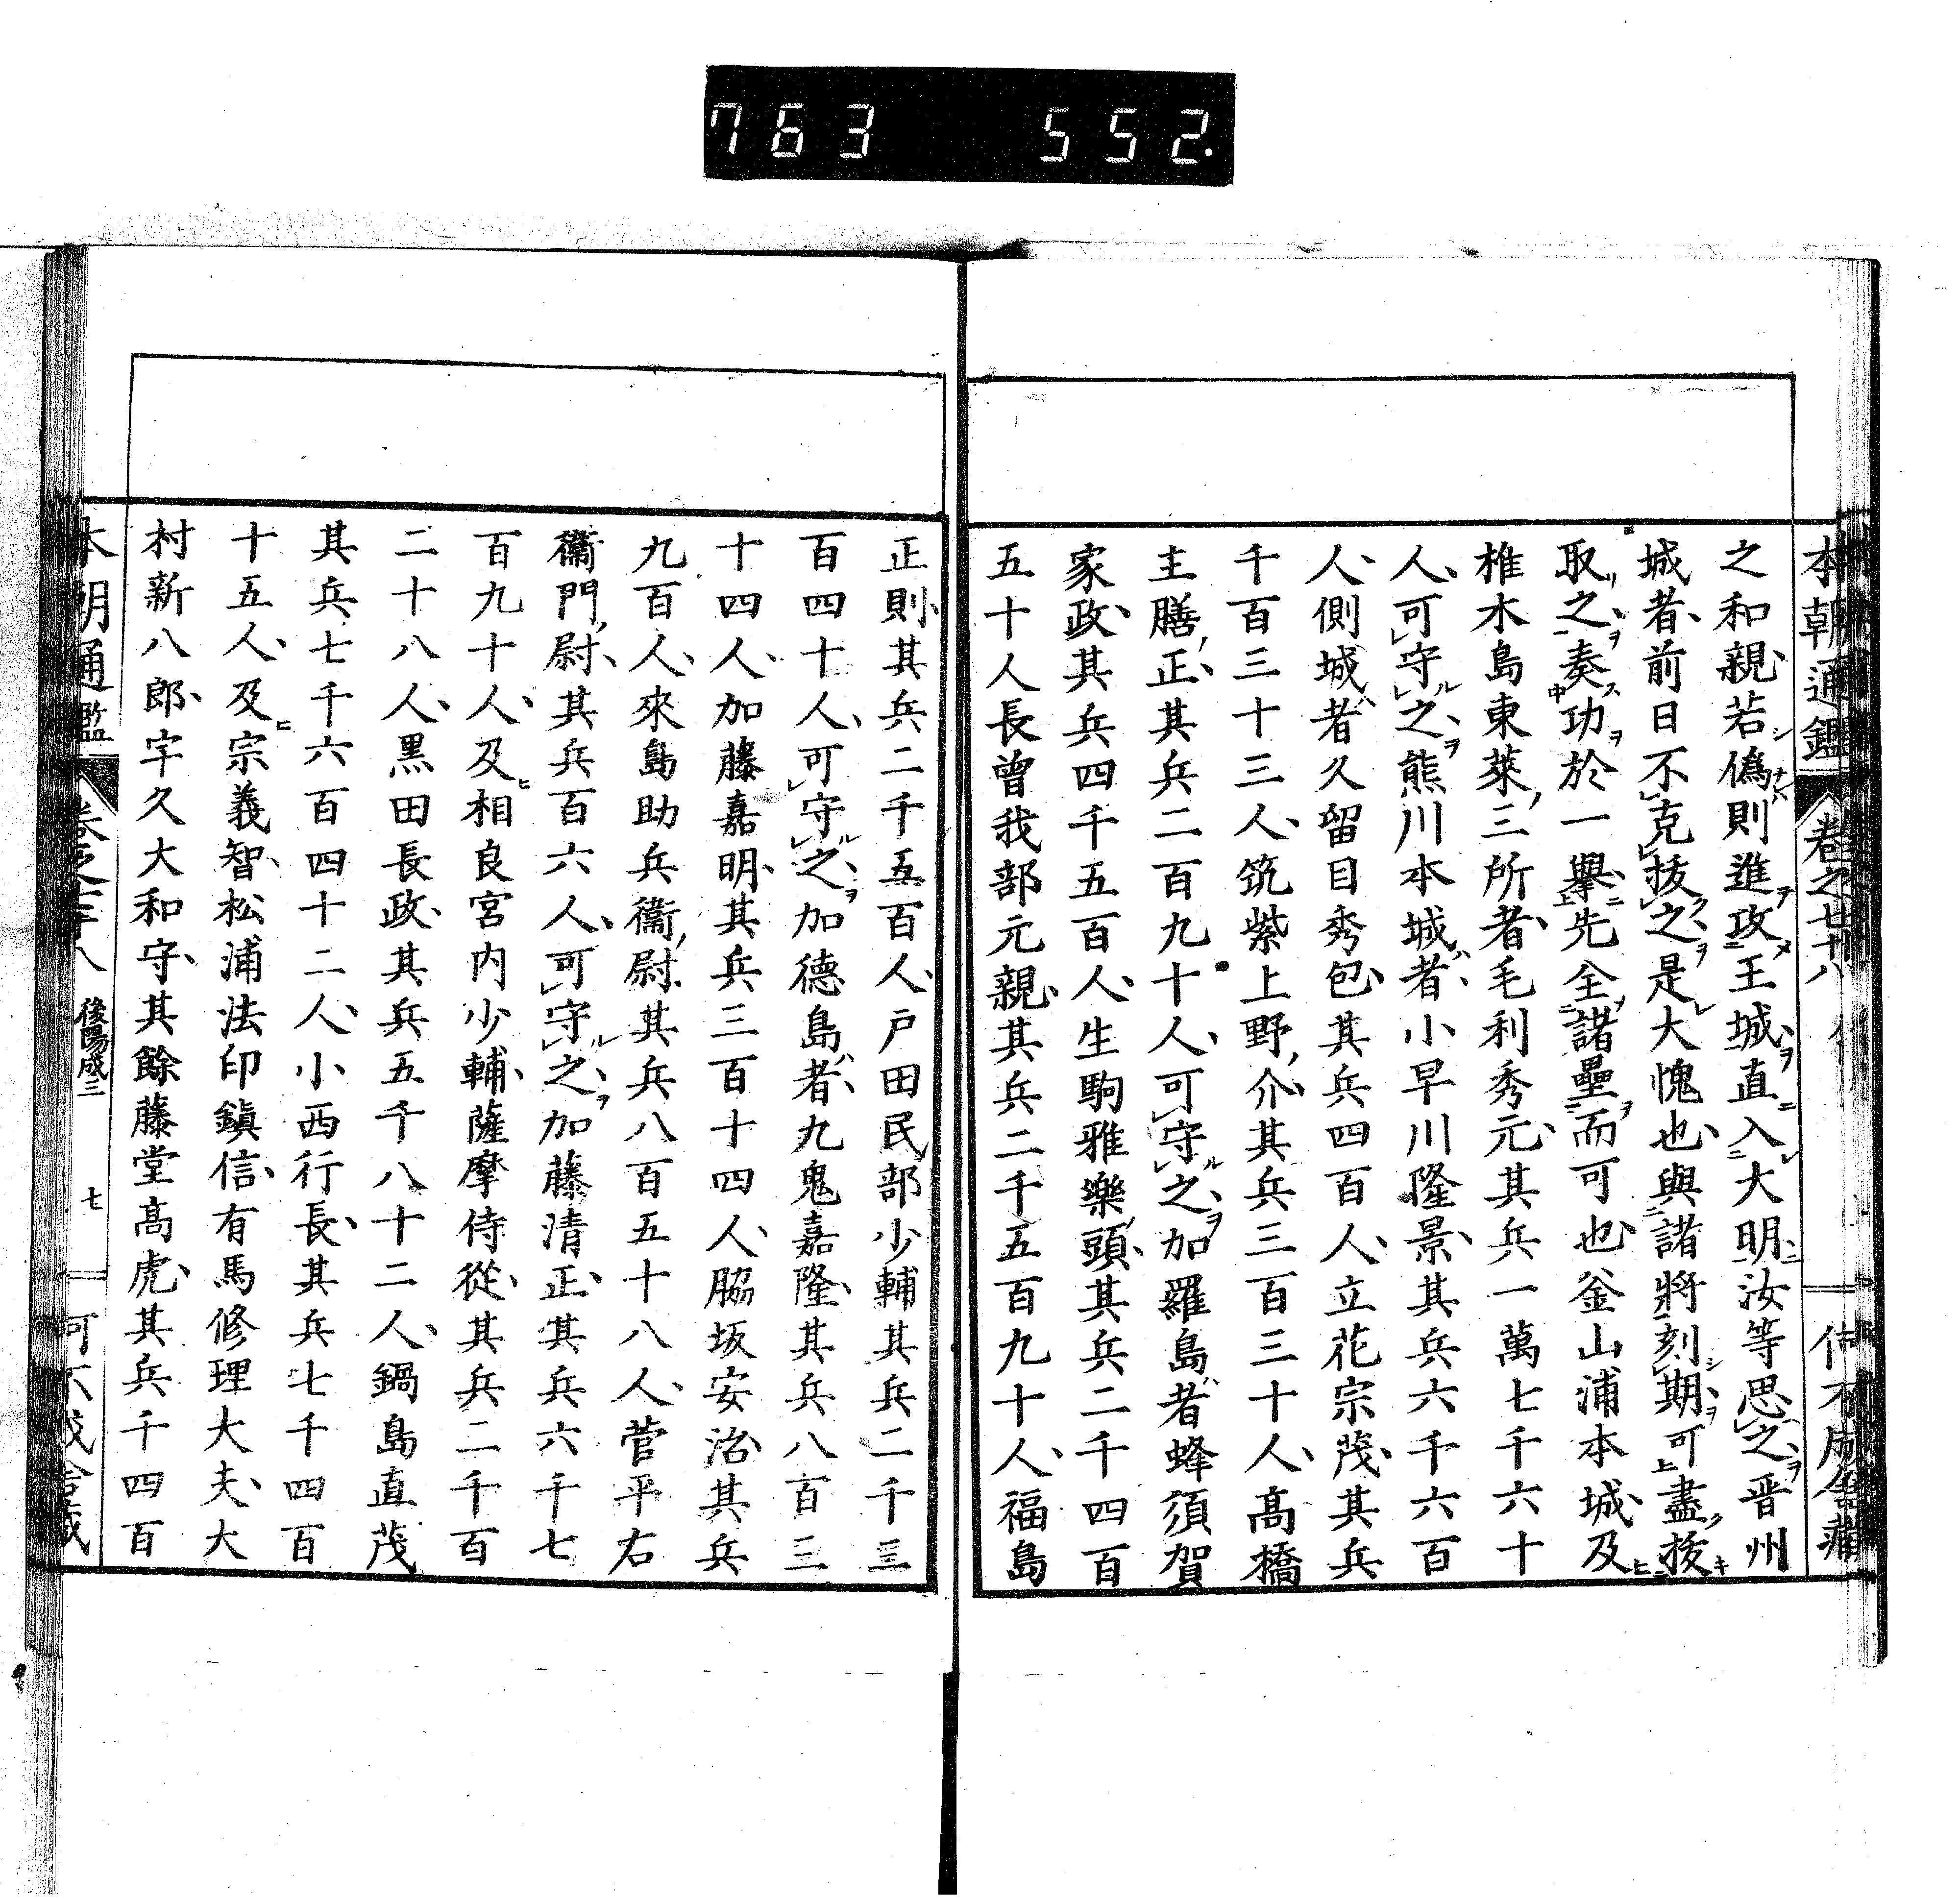 763 552.
本朝通鑑 卷之七十八
之和親若僞則進攻王城直入大明汝等思之晋州
城者前日不克拔之是大愧也與諸將刻期可盡拔
取之奏功於一擧先全諸壘而可也釜山浦本城及
椎木島東萊三所者毛利秀元其兵一萬七千六十
人可守之熊川本城者小早川隆景其兵六千六百
人側城者久留目秀包其兵四百人立花宗茂其兵
千百三十三人筑紫上野介其兵三百三十人髙橋
主膳正其兵二百九十人可守之加羅島者蜂須賀
家政其兵四千五百人生駒雅樂頭其兵二千四百
五十人長曾我部元親其兵二千五百九十人福島
正則其兵二千五百人戸田民部少輔其兵二千三
百四十人可守之加德島者九鬼嘉隆其兵八百三
十四人加藤嘉明其兵三百十四人脇坂安治其兵
九百人來島助兵衞尉其兵八百五十八人菅平右
衞門尉其兵百六人可守之加藤清正其兵六千七
百九十人及相良宮内少輔薩摩侍從其兵二千百
二十八人黒田長政其兵五千八十二人鍋島直茂
其兵七千六百四十二人小西行長其兵七千四百
十五人及宗義智松浦法印鎭信有馬修理大夫大
村新八郎宇久大和守其餘藤堂髙虎其兵千四百
本朝通鑑 卷之七十八 後陽成三 七